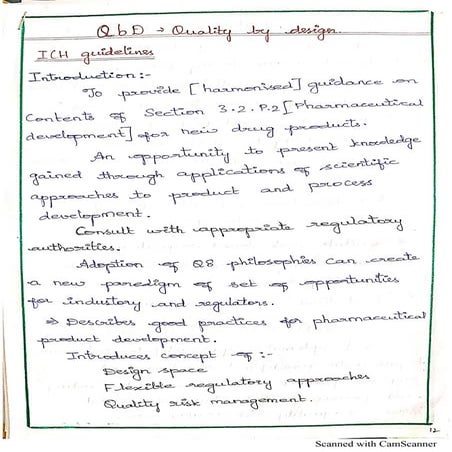 QbD → Quality by design.
ICH guidelines
Introduction:-
To provide [harmonised] guidance on
Contents of Section 3.2.P.2 [Pharmaceutical
development] for new drug products.
An opportunity to present knowledge
gained through applications of scientific
approaches to product and process
development.
Consult with appropriate regulatory
authorities.
Adoption of Q8 philosophies can create
a new paradigm of set of opportunities
for industory and regulators.
⇒ Describes good practices for pharmaceutical
product development.
Introduces concept of :-
Design space
Flexible regulatory approaches
Quality risk management.
12
Scanned with CamScanner